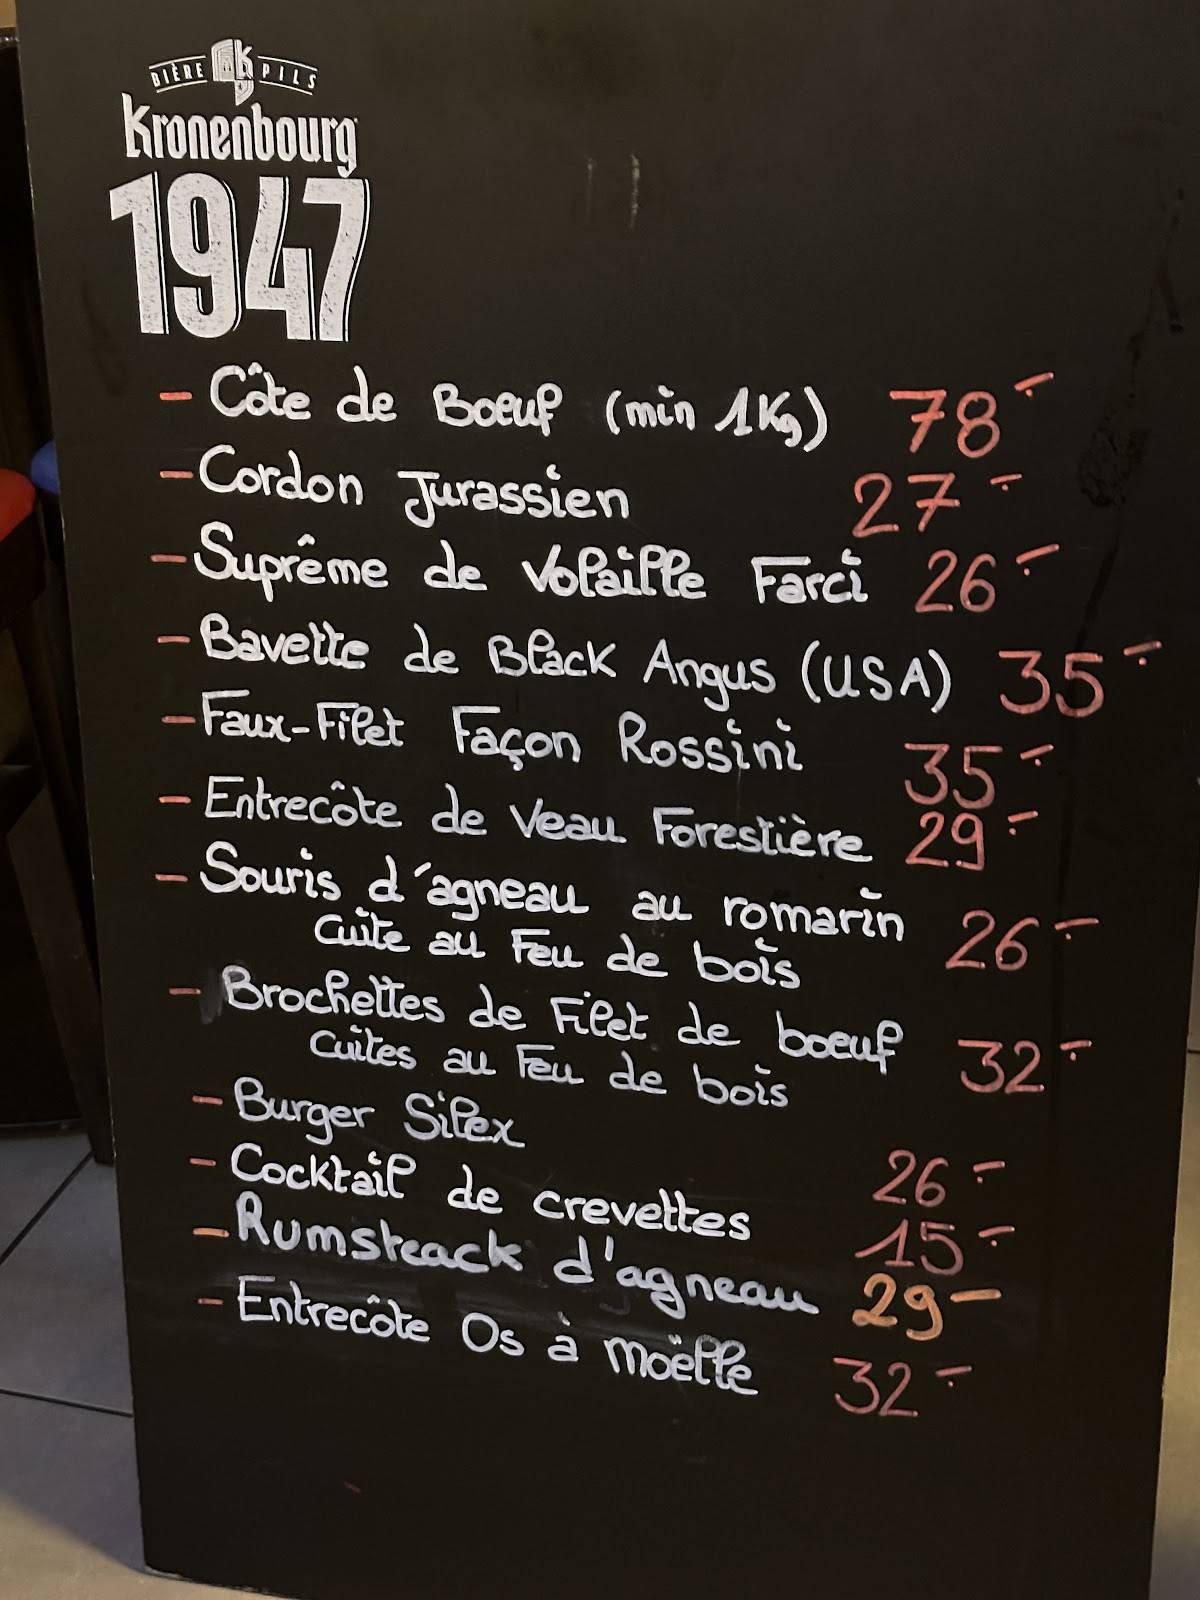 BIÈRE K PILS
Kronenbourg
1947
- Côte de Boeuf (min 1Kg) 78.-
- Cordon Jurassien 27.-
- Suprême de Volaille Farci 26.-
- Bavette de Black Angus (USA) 35.-
- Faux-Filet Façon Rossini 35.-
- Entrecôte de Veau Forestière 29.-
- Souris d'agneau au romarin 26.-
cuite au Feu de bois
- Brochettes de Filet de boeuf 32.-
cuites au Feu de bois
- Burger Silex 26.-
- Cocktail de crevettes 15.-
- Rumsteack d'agneau 29-
- Entrecôte Os à moëlle 32.-